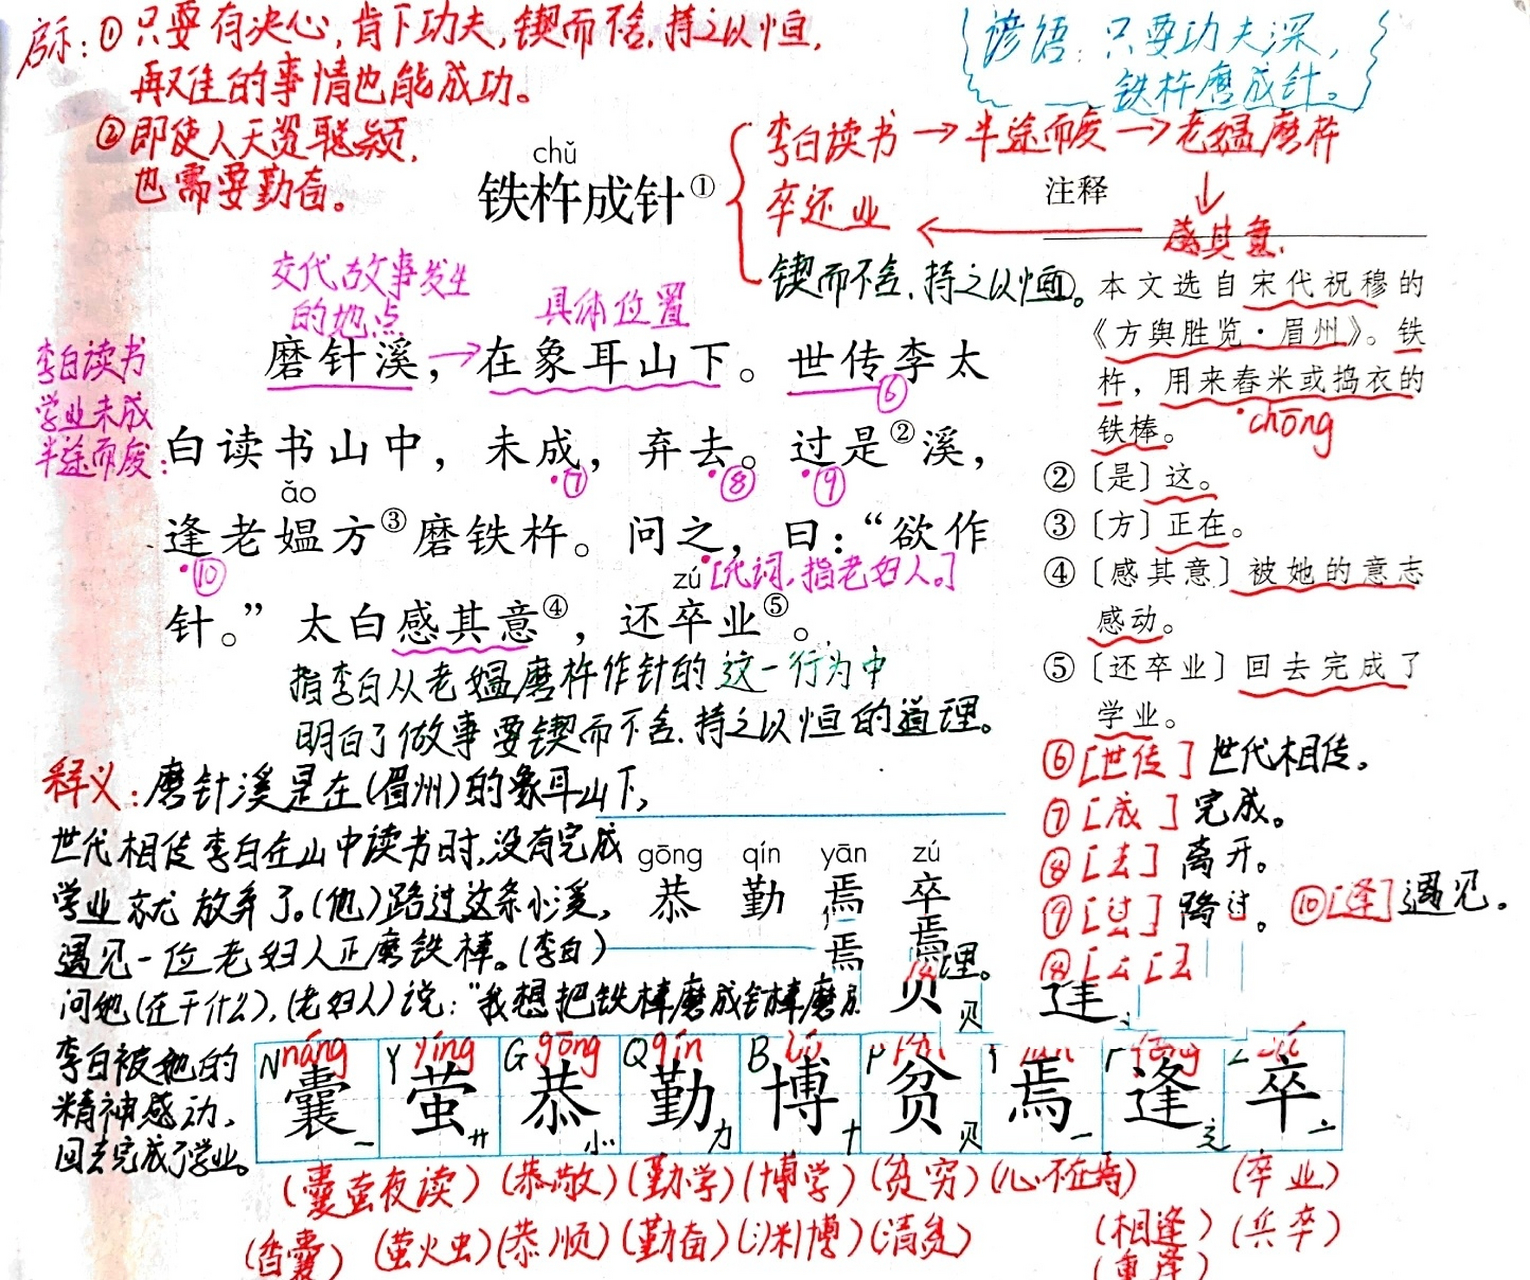 启示:①只要有决心,肯下功夫,锲而不舍,持之以恒,
再难的事情也能成功。
②即使人天资聪颖,
也需要勤奋。
谚语:只要功夫深,
铁杵磨成针。
chǔ
铁杵成针①
李白读书→半途而废→老媪磨杵
↓
感其意.
卒还业←
锲而不舍,持之以恒。
注释
交代故事发生
的地点
具体位置
李白读书
学业未成
半途而废:
磨针溪,→在象耳山下。世传李太
⑥
白读书山中,未成,弃去。过是②溪,
⑦ ⑧ ⑨
ǎo
逢老媪方③磨铁杵。问之,曰:“欲作
⑩ [代词,指老妇人。]
zú
针。”太白感其意④,还卒业⑤。
指李白从老媪磨杵作针的这一行为中
明白了做事要锲而不舍,持之以恒的道理。
① 本文选自宋代祝穆的
《方舆胜览·眉州》。铁
杵,用来舂米或捣衣的
chōng
铁棒。
②〔是〕这。
③〔方〕正在。
④〔感其意〕被她的意志
感动。
⑤〔还卒业〕回去完成了
学业。
⑥[世传]世代相传。
⑦[成]完成。
⑧[去]离开。
⑨[过]路过。
⑩[逢]遇见。
释义:磨针溪是在(眉州)的象耳山下,
世代相传李白在山中读书时,没有完成
学业就放弃了。(他)路过这条小溪,
遇见一位老妇人正磨铁棒。(李白)
问她(在干什么),(老妇人)说:“我想把铁棒磨成针
李白被她的
精神感动,
回去完成了学业。
gōng qín yān zú
恭 勤 焉 卒
焉 焉
理。
贝 贝
N náng Y yíng G gōng Q qín B bó
囊 萤 恭 勤 博 贫 焉 逢 卒
一 艹 小 力 十 贝 一 辶 亠
(囊萤夜读)(恭敬)(勤学)(博学)(贫穷)(心不在焉) (卒业)
(香囊)(萤火虫)(恭顺)(勤奋)(渊博)(清贫) (相逢)(兵卒)
(重逢)